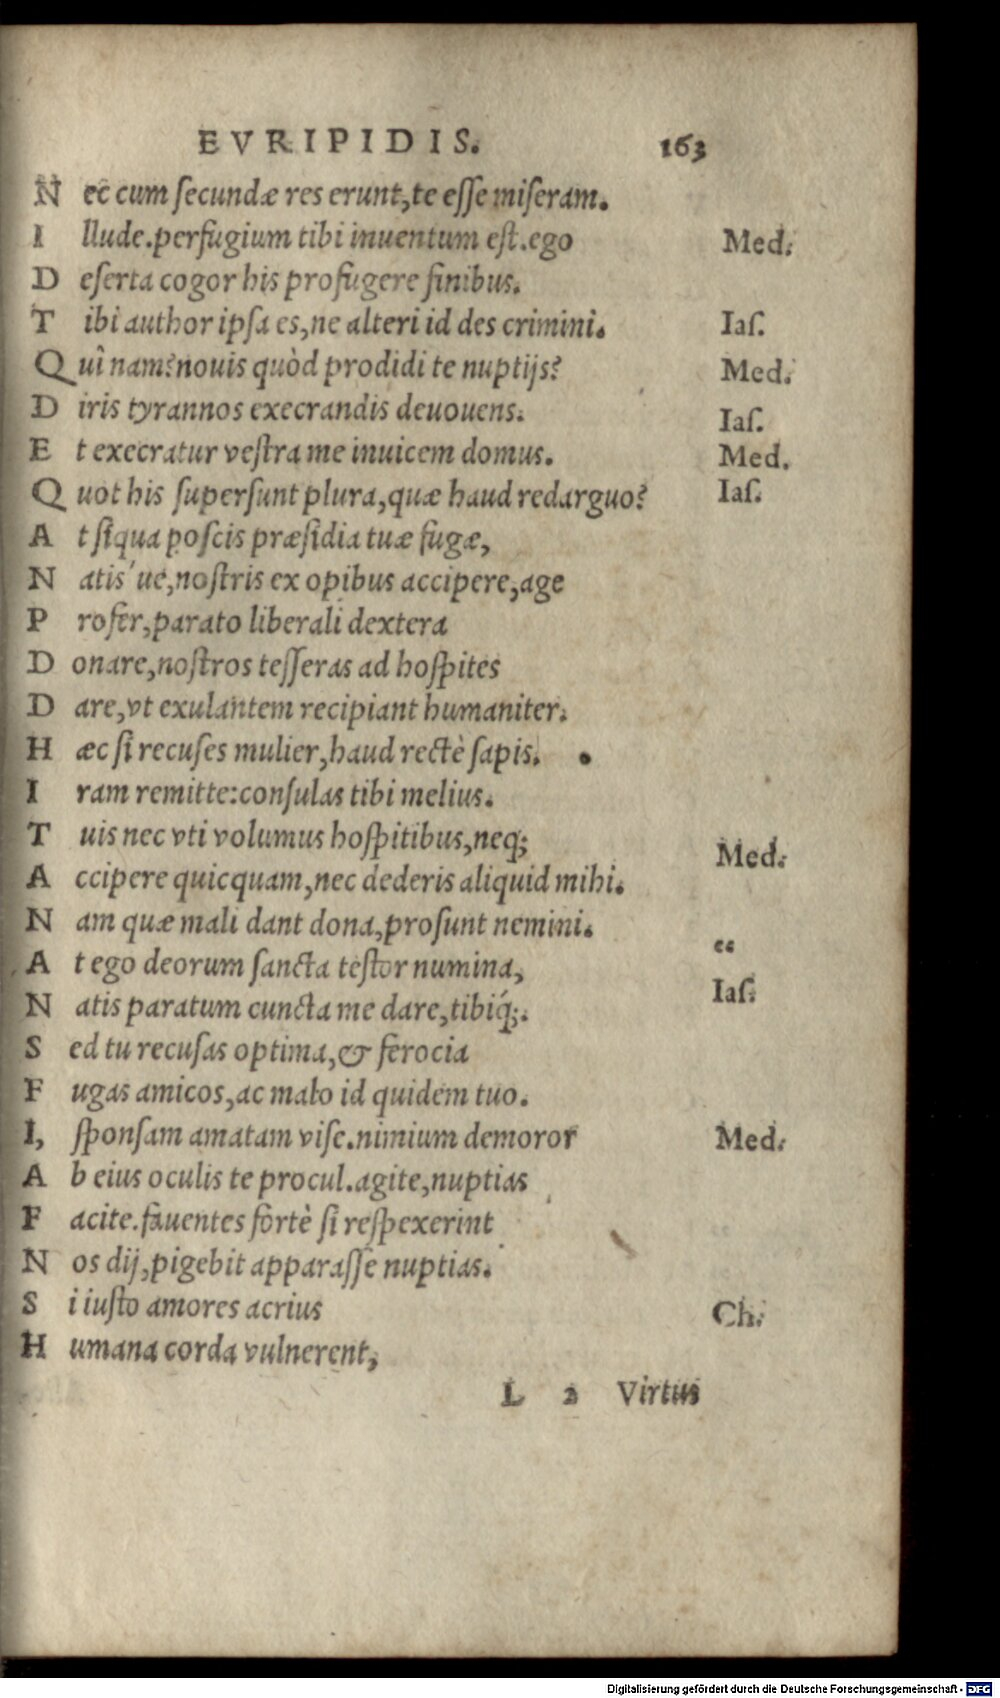 EVRIPIDIS. 163
Nec cum ſecundæ res erunt,te eſſe miſeram.
Illude.perfugium tibi inuentum eſt.ego Med.
Deſerta cogor his profugere finibus.
Tibi author ipſa es,ne alteri id des crimini. Iaſ.
Quî nam?nouis quòd prodidi te nuptijs? Med.
Diris tyrannos execrandis deuouens. Iaſ.
Et execratur veſtra me inuicem domus. Med.
Quot his ſuperſunt plura,quæ haud redarguo? Iaſ.
At ſiqua poſcis præſidia tuæ fugæ,
Natis'ue,noſtris ex opibus accipere,age
Profer,parato liberali dextera
Donare,noſtros teſſeras ad hoſpites
Dare,vt exulantem recipiant humaniter.
Hæc ſi recuſes mulier,haud rectè ſapis.
Iram remitte:conſulas tibi melius.
Tuis nec vti volumus hoſpitibus,neq; Med.
Accipere quicquam,nec dederis aliquid mihi.
Nam quæ mali dant dona,proſunt nemini. “
At ego deorum ſancta teſtor numina, Iaſ.
Natis paratum cuncta me dare,tibiq́;.
Sed tu recuſas optima,& ferocia
Fugas amicos,ac malo id quidem tuo.
I, ſponſam amatam viſe.nimium demoror Med.
Ab eius oculis te procul.agite,nuptias
Facite.fauentes fortè ſi reſpexerint
Nos dij,pigebit apparaſſe nuptias.
Si iuſto amores acrius Ch.
Humana corda vulnerent,
L 2 Virtus
Digitalisierung gefördert durch die Deutsche Forschungsgemeinschaft - DFG